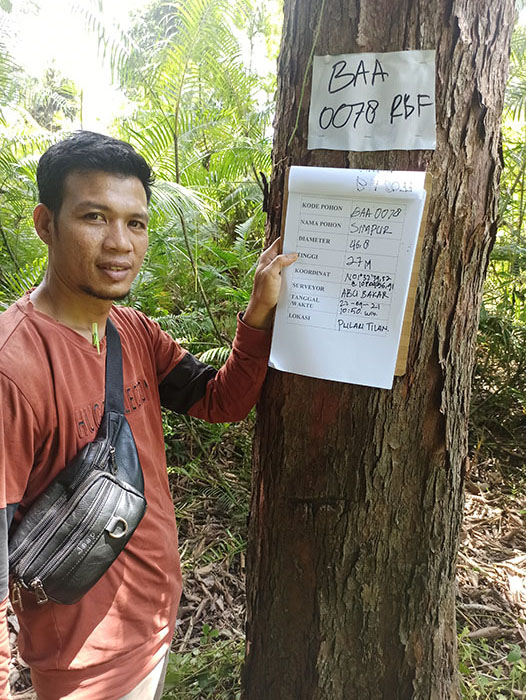 BAA
0078 RBF
KODE POHON BAA 0078
NAMA POHON SIMPUR
DIAMETER 46.8
TINGGI 27 M
KOORDINAT
SURVEYOR ABU BAKAR
TANGGAL
WAKTU 10:50 WIB
LOKASI PULAU TILAN